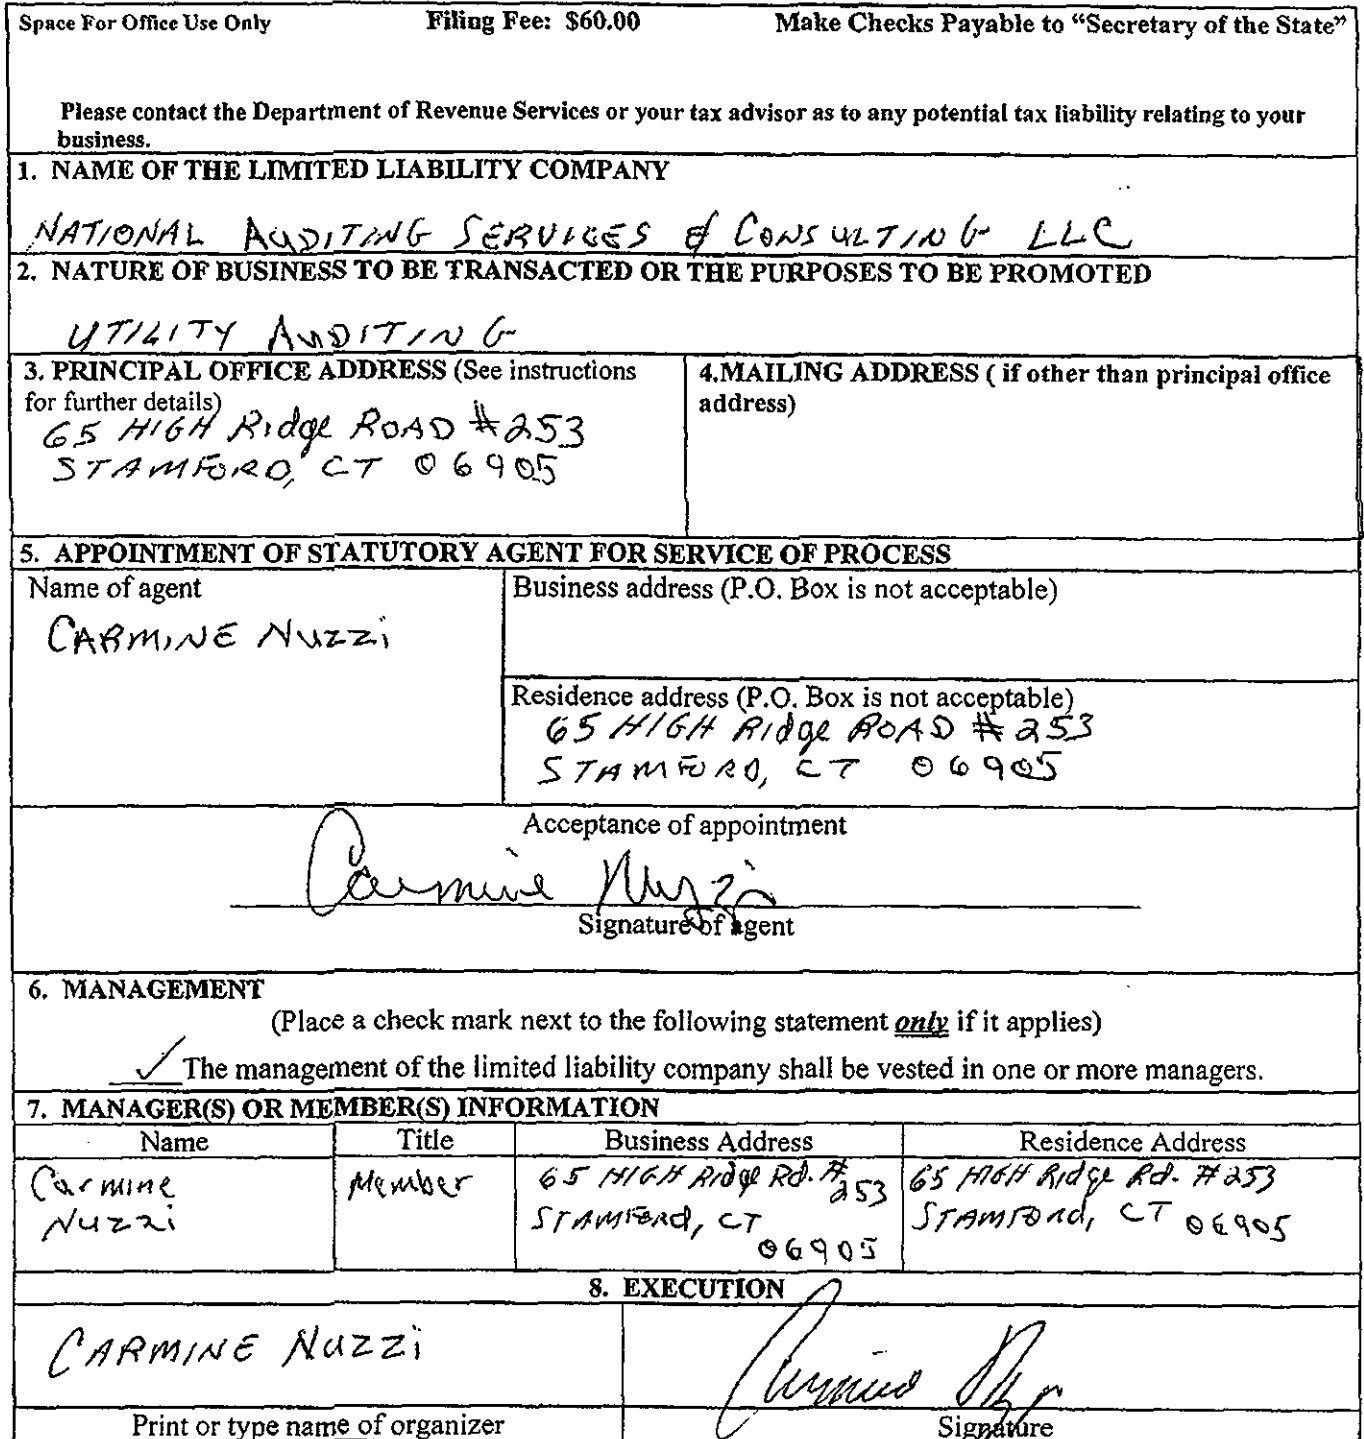 Space For Office Use Only Filing Fee: $60.00 Make Checks Payable to “Secretary of the State”
Please contact the Department of Revenue Services or your tax advisor as to any potential tax liability relating to your
business.
1. NAME OF THE LIMITED LIABILITY COMPANY
NATIONAL AUDITING SERVICES & CONSULTING LLC
2. NATURE OF BUSINESS TO BE TRANSACTED OR THE PURPOSES TO BE PROMOTED
UTILITY AUDITING
3. PRINCIPAL OFFICE ADDRESS (See instructions
for further details)
65 HIGH Ridge ROAD #253
STAMFORD, CT 06905
4.MAILING ADDRESS ( if other than principal office
address)
5. APPOINTMENT OF STATUTORY AGENT FOR SERVICE OF PROCESS
Name of agent
CARMINE NUZZi
Business address (P.O. Box is not acceptable)
Residence address (P.O. Box is not acceptable)
65 HIGH Ridge ROAD #253
STAMFORD, CT 06905
Acceptance of appointment
Carmine Nuzzi
Signature of agent
6. MANAGEMENT
(Place a check mark next to the following statement only if it applies)
✓ The management of the limited liability company shall be vested in one or more managers.
7. MANAGER(S) OR MEMBER(S) INFORMATION
Name Title Business Address Residence Address
Carmine
Nuzzi
Member
65 HIGH Ridge Rd. #
253
STAMFORd, CT
06905
65 HIGH Ridge Rd. #253
STAMFORd, CT 06905
8. EXECUTION
CARMINE NUZZi
Print or type name of organizer
Signature